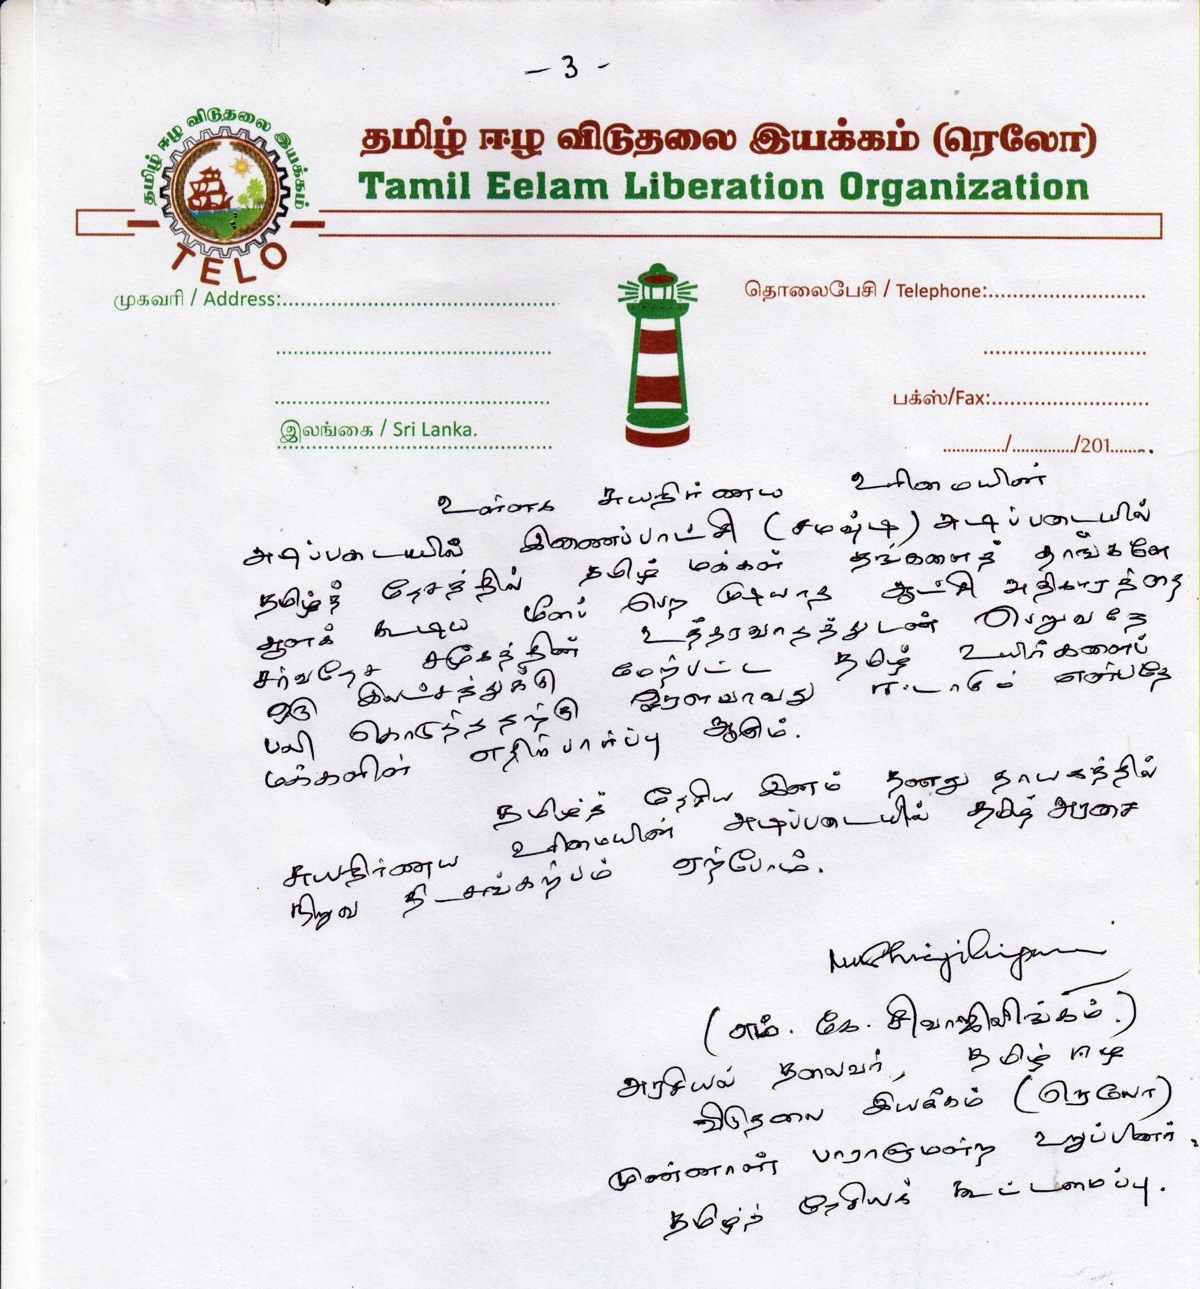 - 3 -
தமிழ் ஈழ விடுதலை இயக்கம்
TELO
தமிழ் ஈழ விடுதலை இயக்கம் (ரெலோ)
Tamil Eelam Liberation Organization
முகவரி / Address:
தொலைபேசி / Telephone:
பக்ஸ்/Fax:
இலங்கை / Sri Lanka.
........../............/201........
உள்ளக சுயநிர்ணய உரிமையின்
அடிப்படையில் இணைப்பாட்சி (சமஷ்டி) அடிப்படையில்
தமிழ்த் தேசத்தில் தமிழ் மக்கள் தங்களைத் தாங்களே
ஆளக் கூடிய மீளப் பெற முடியாத ஆட்சி அதிகாரத்தை
சர்வதேச சமூகத்தின் உத்தரவாதத்துடன் பெறுவதே
ஒரு இலட்சத்துக்கு மேற்பட்ட தமிழ் உயிர்களைப்
பலி கொடுத்ததற்கு ஓரளவாவது ஈடாகும் என்பதே
மக்களின் எதிர்பார்ப்பு ஆகும்.
தமிழ்த் தேசிய இனம் தனது தாயகத்தில்
சுயநிர்ணய உரிமையின் அடிப்படையில் தமிழ் அரசை
நிறுவ திடசங்கற்பம் ஏற்போம்.
(எம். கே. சிவாஜிலிங்கம்.)
அரசியல் தலைவர், தமிழ் ஈழ
விடுதலை இயக்கம் (ரெலோ)
முன்னாள் பாராளுமன்ற உறுப்பினர்.
தமிழ்த் தேசியக் கூட்டமைப்பு.